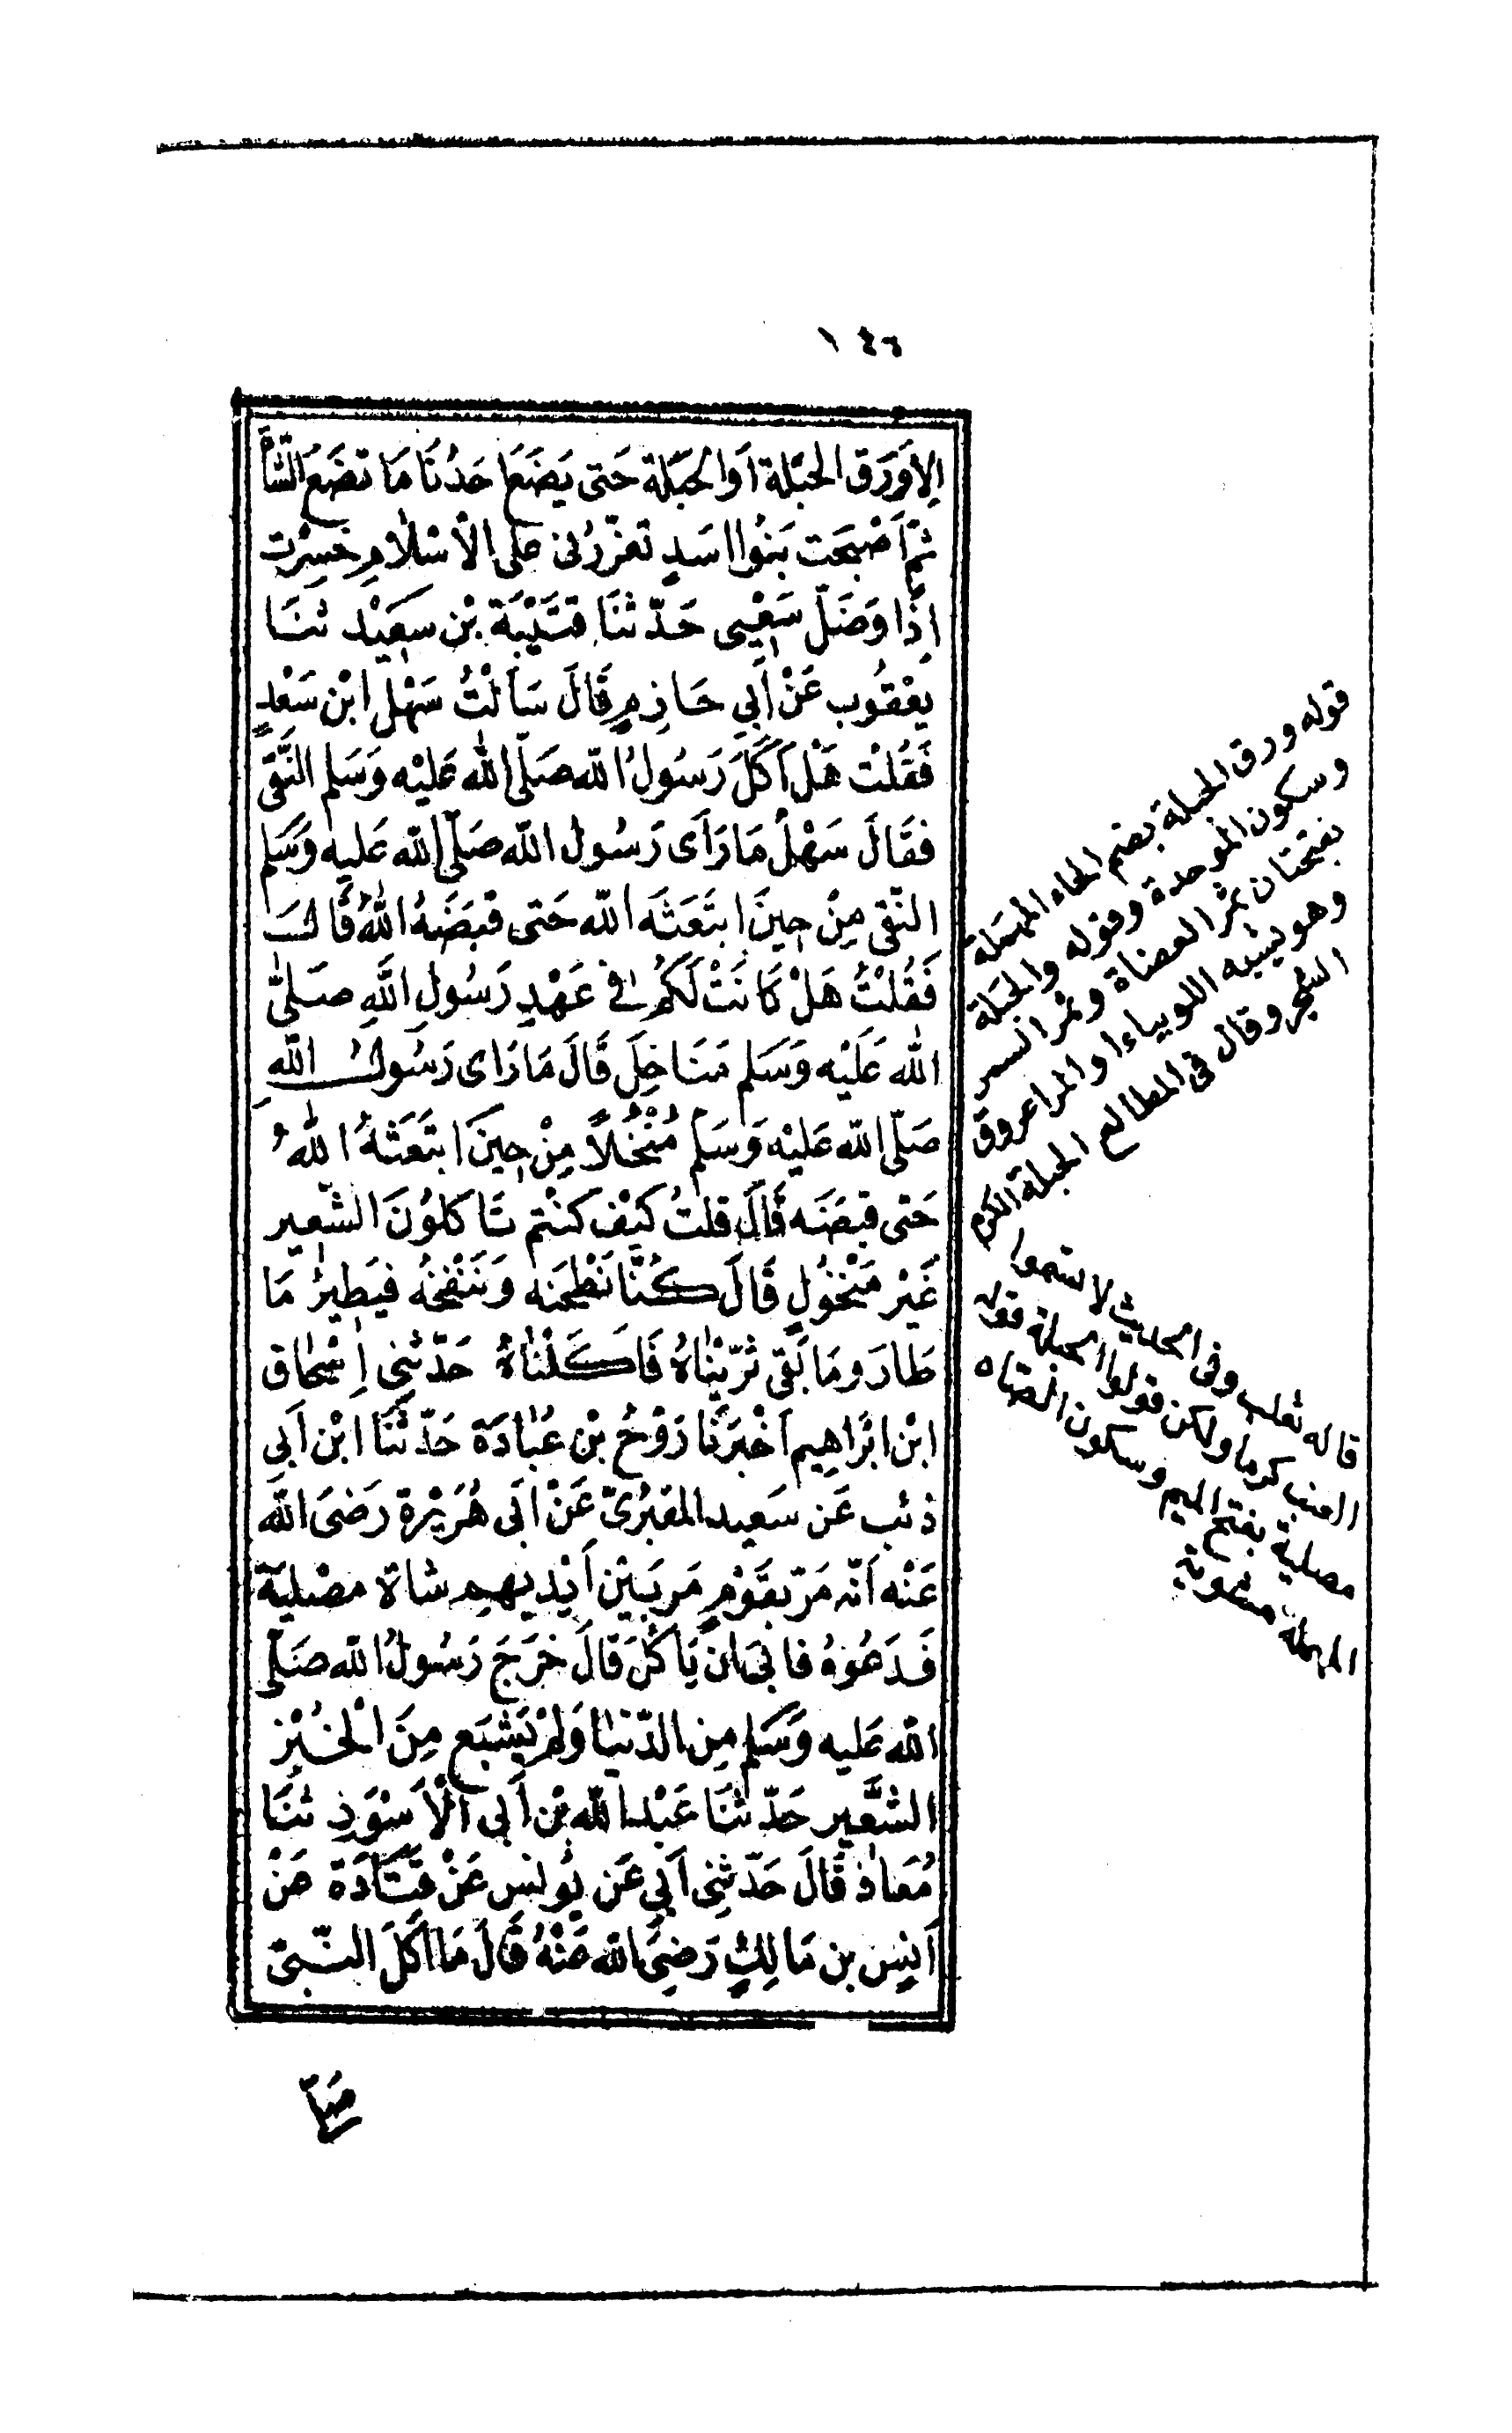 ١٤٦
الا وَرَق الحبْلة اَوالحَبَلة حَتى يَضَعَ اَحَدُنَا مَا تضَعُ الشَّاة
ثمّ اَصْبَحَت بَنُوا اسَدٍ تعَزّرُنى على الْاسْلَامِ خسِرْت
اِذًا وَضَلّ سَعْيِى حَدّثنَا قتَيْبَة بْن سَعِيْد ثنَا
يَعْقُوب عَنْ اَبِي حَازِمٍ قَالَ سَاَلْتُ سَهْلَ ابْن سَعْدٍ
فَقُلْت هَلْ اَكَلَ رَسُولُ الله صَلّى الله عَليْه وَسَلم النَّقى
فقَالَ سَهْلُ مَا رَاَى رَسُول الله صَلّى الله عَليه وَسَلم
النّقى مِنْ حِينَ ابتَعَثَه الله حَتى قبَضَهُ اللهُ قَالَ
فَقُلْتُ هَلْ كَانَتْ لَكُمْ فى عَهْدِ رَسُولِ اللهِ صَلىّ
الله عَلَيْه وَسَلم مَنَاخِلَ قَالَ مَا رَاى رَسُولُ اللهِ
صَلّى الله عَليْه وَسَلم مُنْخُلاً مِنْ حِينَ ابتَعَثهُ اللهُ
حَتى قبضَه قَالَ قلتُ كيْف كنْتم تَاكلوُنَ الشّعير
غَيْر مَنْخُولٍ قَالَ كُنَّا نَطْحَنه وَنَنْفخُهُ فيَطِيرُ مَا
طَارَ ومَا بَقى ثرّيْنَاهُ فَاَكَلْنَاهُ حَدّثنِى اِسْحَاق
ابْن ابْرَاهِيم اَخْبَرَنَا رَوْحُ بْن عُبَادَة حَدّثَنَا ابْن اَبى
ذئب عَن سَعيد المقبُرىّ عَنْ اَبى هُرَيْرة رَضىَ الله
عَنْه اَنّه مَرّ بقَوْمٍ مَر بَيْن اَيْديهِم شاة مصْلية
فَدَعُوهُ فابىَ ان يَاكُلَ قَالَ خرَجَ رَسُولُ الله صَلّى
الله عَليه وَسَلم مِن الدّنيَا وَلمْ يَشْبَع مِنَ الْخُبْزِ
الشَّعير حَدّثنَا عَبْد الله بْن اَبى الْاَسْوَدِ ثنَا
مُعَاذ قَالَ حَدّثنِى اَبى عَن يُونس عَنْ قتَادَة عَنْ
اَنسِ بن مَالِكٍ رَضِىَ الله عَنْهُ قَالَ مَا اَكَلَ النّبىّ
قوله ورق الحبلة بضم الحاء المهملة
وسكون الموحدة وقوله والحبلة
بفتحتان ثمر العضاة وثمر السمر
وهو يشبه اللوبياء او المراد عروق
الشجر وقال فى المطالع الحبلة الكرم
قاله ثعلب وفى الحديث لا تسموا
العنب كرما ولكن قولوا الحبلة قوله
مصلية بفتح الميم وسكون الصاد
المهملة مشوية